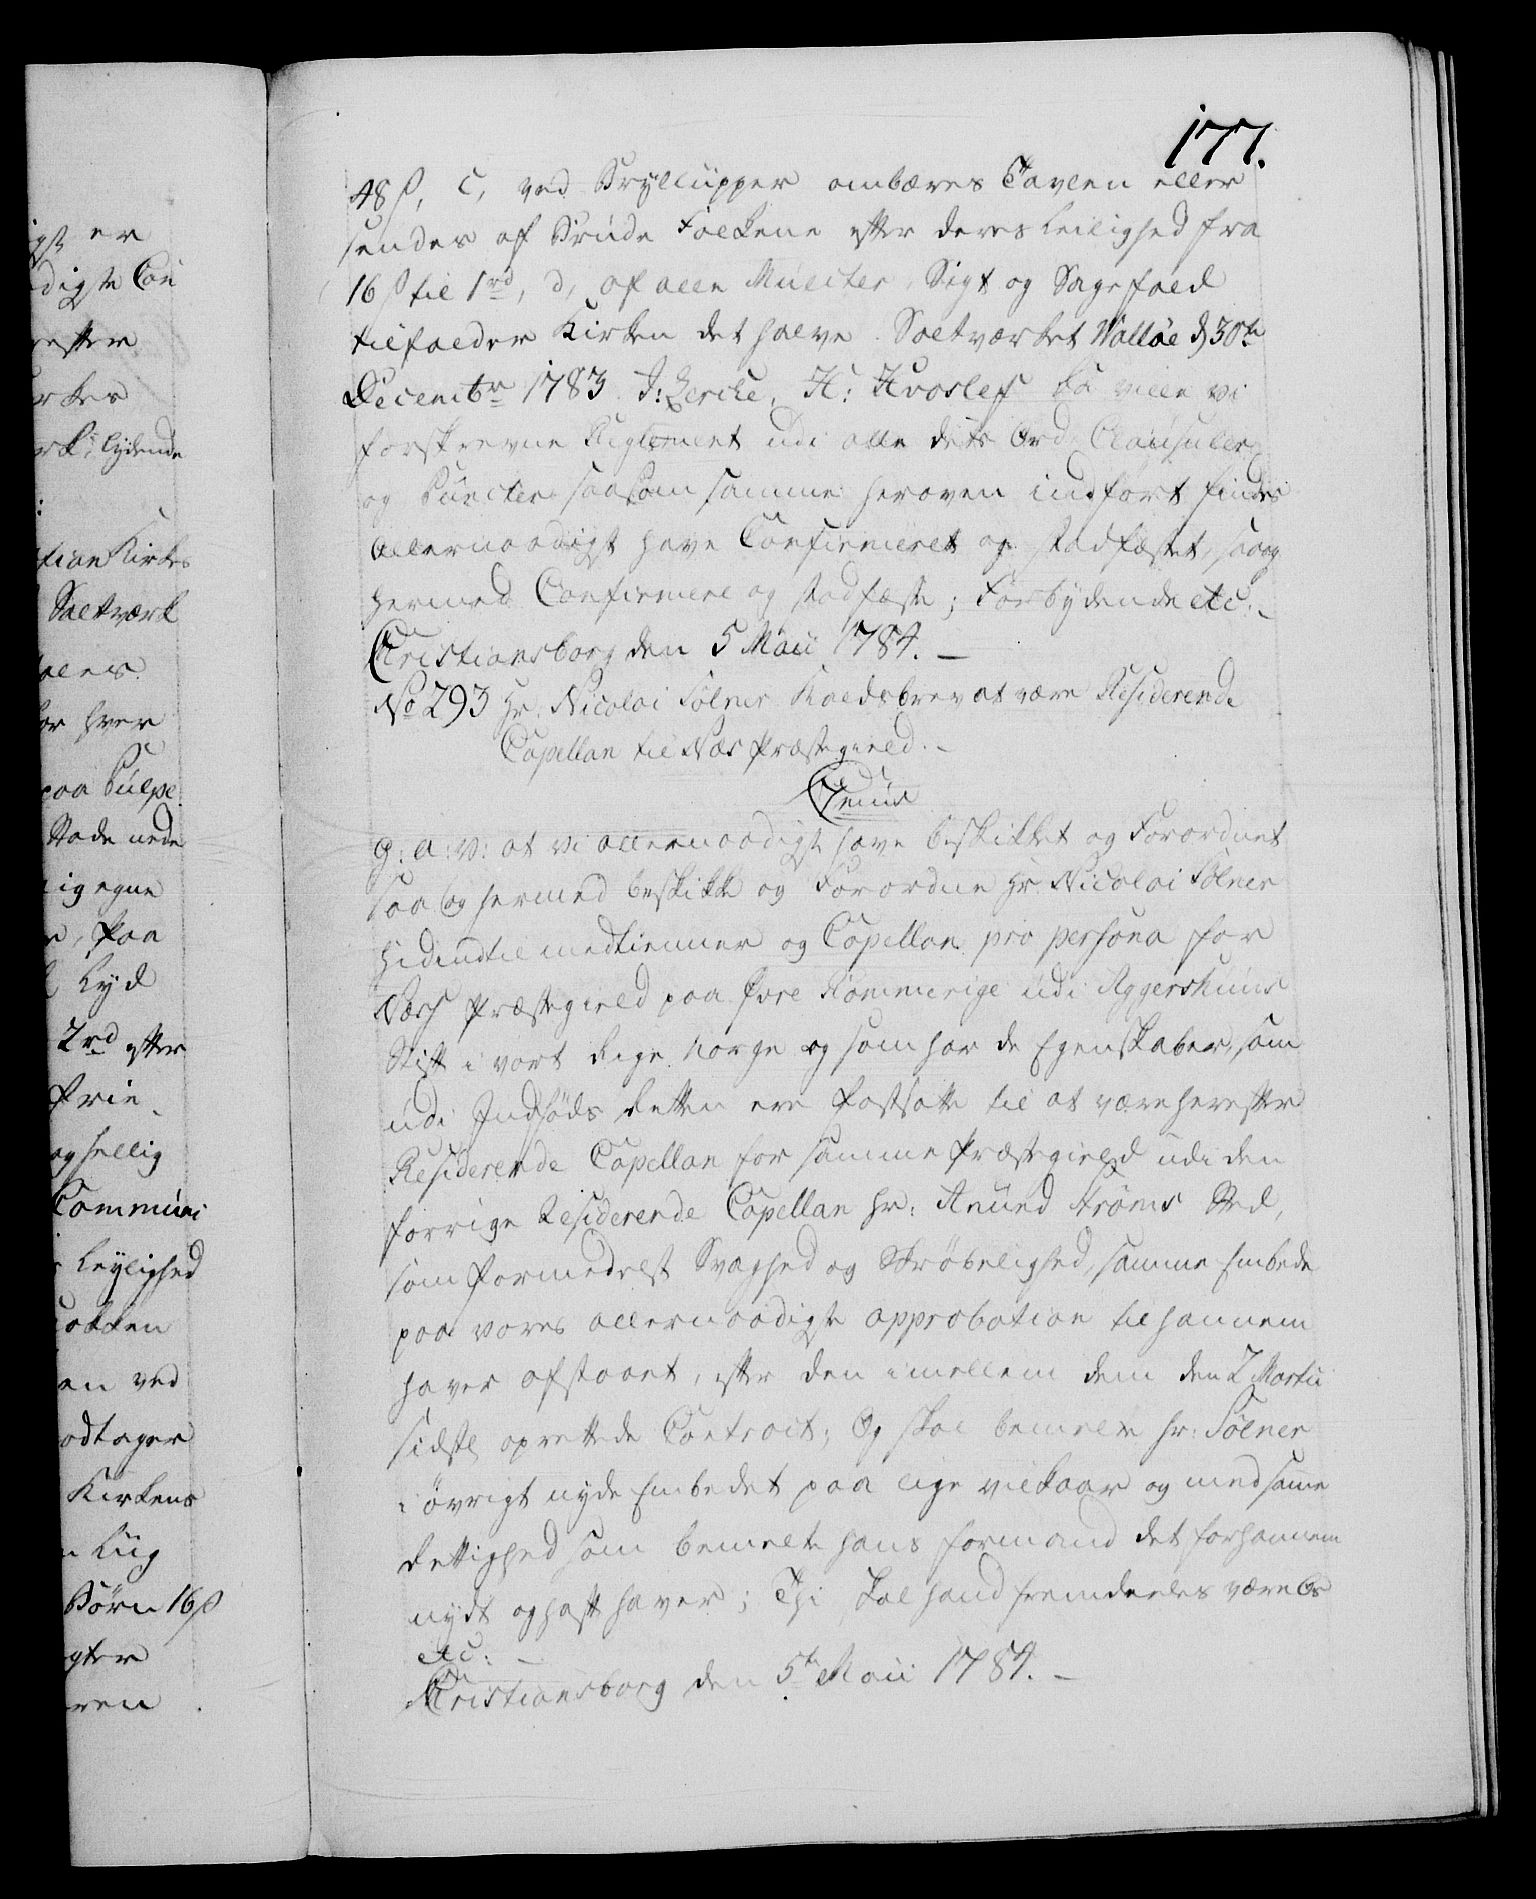 177.
48 ß, C, ved Bryllupper ombæres Tavlen eller
sendes af Brude Folkene efter deres Leilighed fra
16 ß til 1 rd, d, af alle Mulcter, Sigt og Sagefald
tilfalder Kirken det halve. Saltværket Valløe d 30te
Decembr 1783. J: Lerche, H: Hvoslef. Da ville vi
forskrevne Reglement udi alle dets Ord, Clausuler
og Puncter saasom samme heroven indført findes
allernaadigst have Confirmeret og stadfæstet, saa og
hermed Confirmere og stadfæste; Forbydende etc:
Christiansborg den 5 Maii 1784. —
No 293 Hr. Nicolai Sølner Kaldsbrev at være Residerende
Capellan til Næs Præstegield. —
G: A: V: at vi allernaadigst have beskikket og Forordnet
saa og hermed beskikke og Forordne Hr. Nicolai Sølner
hidindtil medtienner og Capellan pro persona for
Næss Præstegield paa Øvre Rommerige udi Aggershuus
Stift i vort Rige Norge og som har de Egenskaber, som
udi Indføds Retten ere fastsatte til at være herefter
Residerende Capellan for samme Præstegield udi den
forrige Residerende Capellan Hr: Anund Strøms Sted,
som formedelst Svaghed og Skrøbelighed, samme Embede
paa vores allernaadigste approbation til hannem
haver afstaaet, efter den imellem dem den 2 Martii
sidstl oprettede Contract; Og skal bemelte Hr: Sølner
i øvrigt nyde Embedet paa lige vilkaar og med samme
Rettighed som bemelte hans formand det for hannem
nydt og haft haver; Thi skal hand fremdeeles være Os
etc: —
Christiansborg den 5te Maii 1784. —